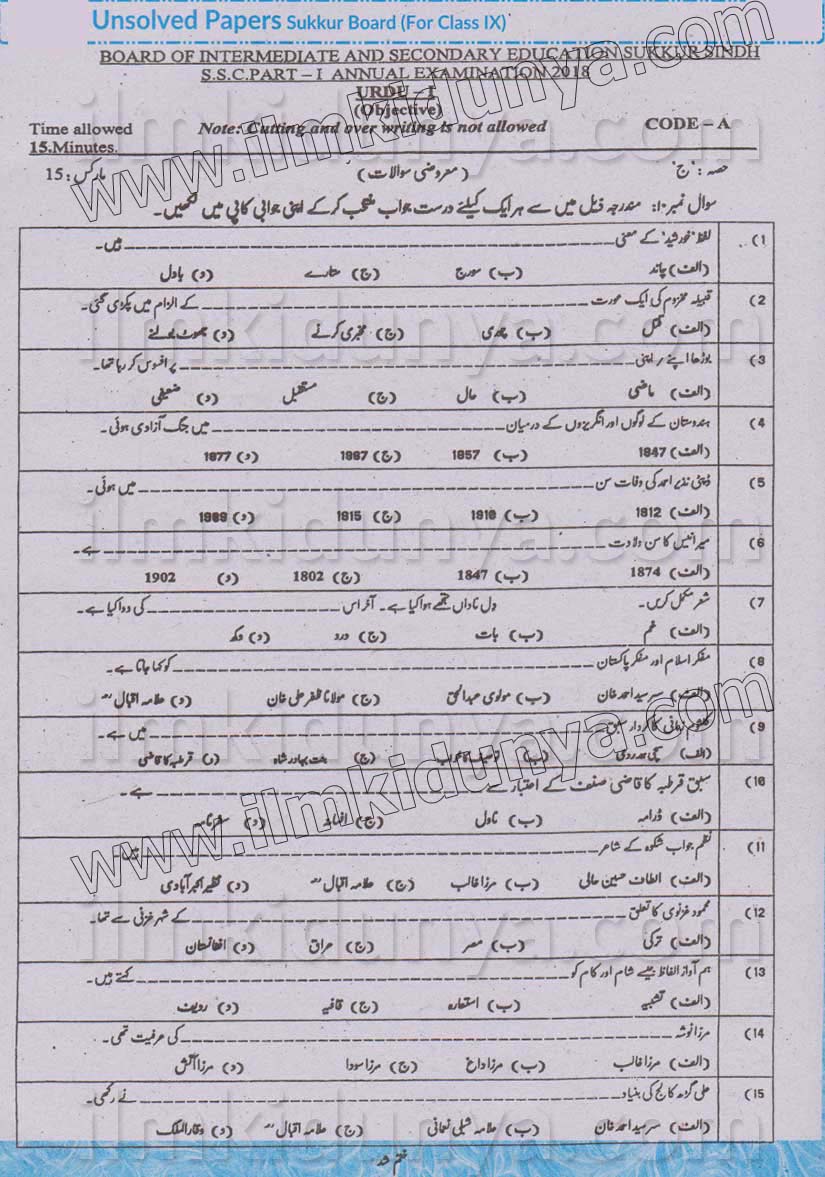 Unsolved Papers Sukkur Board (For Class IX)
BOARD OF INTERMEDIATE AND SECONDARY EDUCATION SUKKUR SINDH
S.S.C.PART – I ANNUAL EXAMINATION 2018
URDU – I
(Objective)
Time allowed Note: Cutting and over writing is not allowed CODE – A
15.Minutes.
حصہ : "ج" (معروضی سوالات) مارکس : 15
سوال نمبر ۱: مندرجہ ذیل میں سے ہر ایک کیلئے درست جواب منتخب کر کے اپنی جوابی کاپی میں لکھیں۔
(1 لفظ "خورشید" کے معنی ____________ ہیں۔
(الف) چاند (ب) سورج (ج) ستارے (د) بادل
(2 قبیلہ مخزوم کی ایک عورت ____________ کے الزام میں پکڑی گئی۔
(الف) قتل (ب) چوری (ج) مخبری کرنے (د) جھوٹ بولنے
(3 بوڑھا اپنے / اپنی ____________ پر افسوس کر رہا تھا۔
(الف) ماضی (ب) حال (ج) مستقبل (د) ضعیفی
(4 ہندوستان کے لوگوں اور انگریزوں کے درمیان ____________ میں جنگ آزادی ہوئی۔
(الف) 1847 (ب) 1857 (ج) 1867 (د) 1877
(5 ڈپٹی نذیر احمد کی وفات سن ____________ میں ہوئی۔
(الف) 1912 (ب) 1910 (ج) 1915 (د) 1909
(6 میر انیس کا سن ولادت ____________ ہے۔
(الف) 1874 (ب) 1847 (ج) 1802 (د) 1902
(7 شعر مکمل کریں۔ دل ناداں تجھے ہوا کیا ہے۔ آخر اس ____________ کی دوا کیا ہے۔
(الف) غم (ب) بات (ج) درد (د) دکھ
(8 مفکر اسلام اور مفکر پاکستان ____________ کو کہا جاتا ہے۔
(الف) سر سید احمد خان (ب) مولوی عبدالحق (ج) مولانا ظفر علی خان (د) علامہ اقبالؒ
(9 زمانی کا کردار سبق ____________ میں ہے۔
(الف) سچی ہمدردی (ب) (ج) بنت بہادر شاہ (د) قرطبہ کا قاضی
(10 سبق قرطبہ کا قاضی صنف کے اعتبار سے ____________ ہے۔
(الف) ڈرامہ (ب) ناول (ج) افسانہ (د) سفرنامہ
(11 نظم جواب شکوہ کے شاعر ____________ ہیں۔
(الف) الطاف حسین حالی (ب) مرزا غالب (ج) علامہ اقبالؒ (د) نظیر اکبر آبادی
(12 محمود غزنوی کا تعلق ____________ کے شہر غزنی سے تھا۔
(الف) ترکی (ب) مصر (ج) عراق (د) افغانستان
(13 ہم آواز الفاظ جیسے شام اور کام کو ____________ کہتے ہیں۔
(الف) تشبیہ (ب) استعارہ (ج) قافیہ (د) ردیف
(14 مرزا نوشہ ____________ کی عرفیت تھی۔
(الف) مرزا غالب (ب) مرزا داغ (ج) مرزا سودا (د) مرزا آتش
(15 علی گڑھ کالج کی بنیاد ____________ نے رکھی۔
(الف) سر سید احمد خان (ب) علامہ شبلی نعمانی (ج) علامہ اقبالؒ (د) وقار الملک
ختم شد
www.ilmkidunya.com
www.ilmkidunya.com
ilmkidunya.com
ilmkidunya.com
ilmkidunya.com
ilmkidunya.com
ilmkidunya.com
ilmkidunya.com
ilmkidunya.com